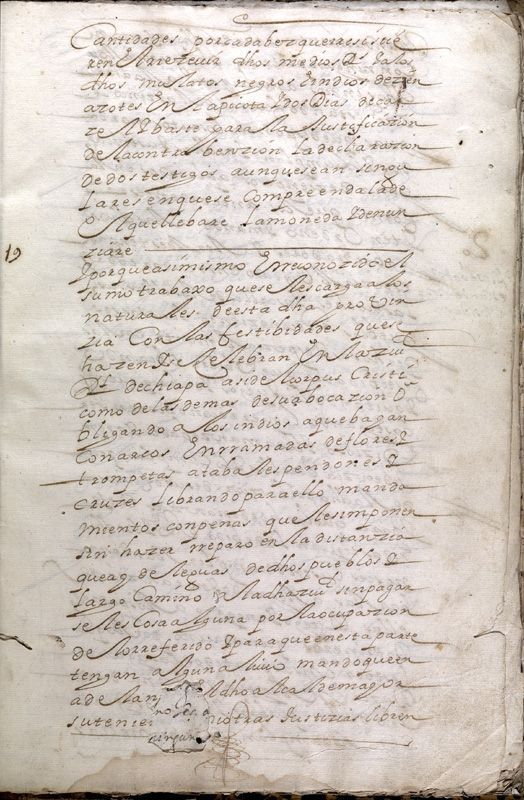 Cantidades por cada bez que rresisue
ren El arrezeuir dhos medios Rs ya los
dhos mulatos negros E indios de zien
azotes En la picota y dos dias de car
zel y baste para la Justificazion
de la contrabenzion la declarazion
de dos testigos aunque sean singu
lares en que se comprenda la de
aquel lebare la moneda y denun
ziare
19
y porque asimismo E rreconozido el
sumo trabaxo que se les carga a los
naturales de esta dha probin
zia Con las festibidades que se
hazen y se Zelebran En la ziud
Rl de chiapa asi del corpus Cristi
como de las demas de su bocazion O
bligando a los indios a que bagan
Con arcos Enrramadas de flores
trompetas atabales pendones
cruzes librando para ello manda
mientos con penas que les imponen
sin hazer rreparo en la distanzia
que ay de leguas de dhos pueblos
largo Camino a la dha ziud sin pagar
seles Cosa alguna por la ocupazion
de lo rreferido y para que en esta parte
tengan algun aliuio mando que en
adelan El dho alcalde mayor
su tenien ni otras Justizias libren